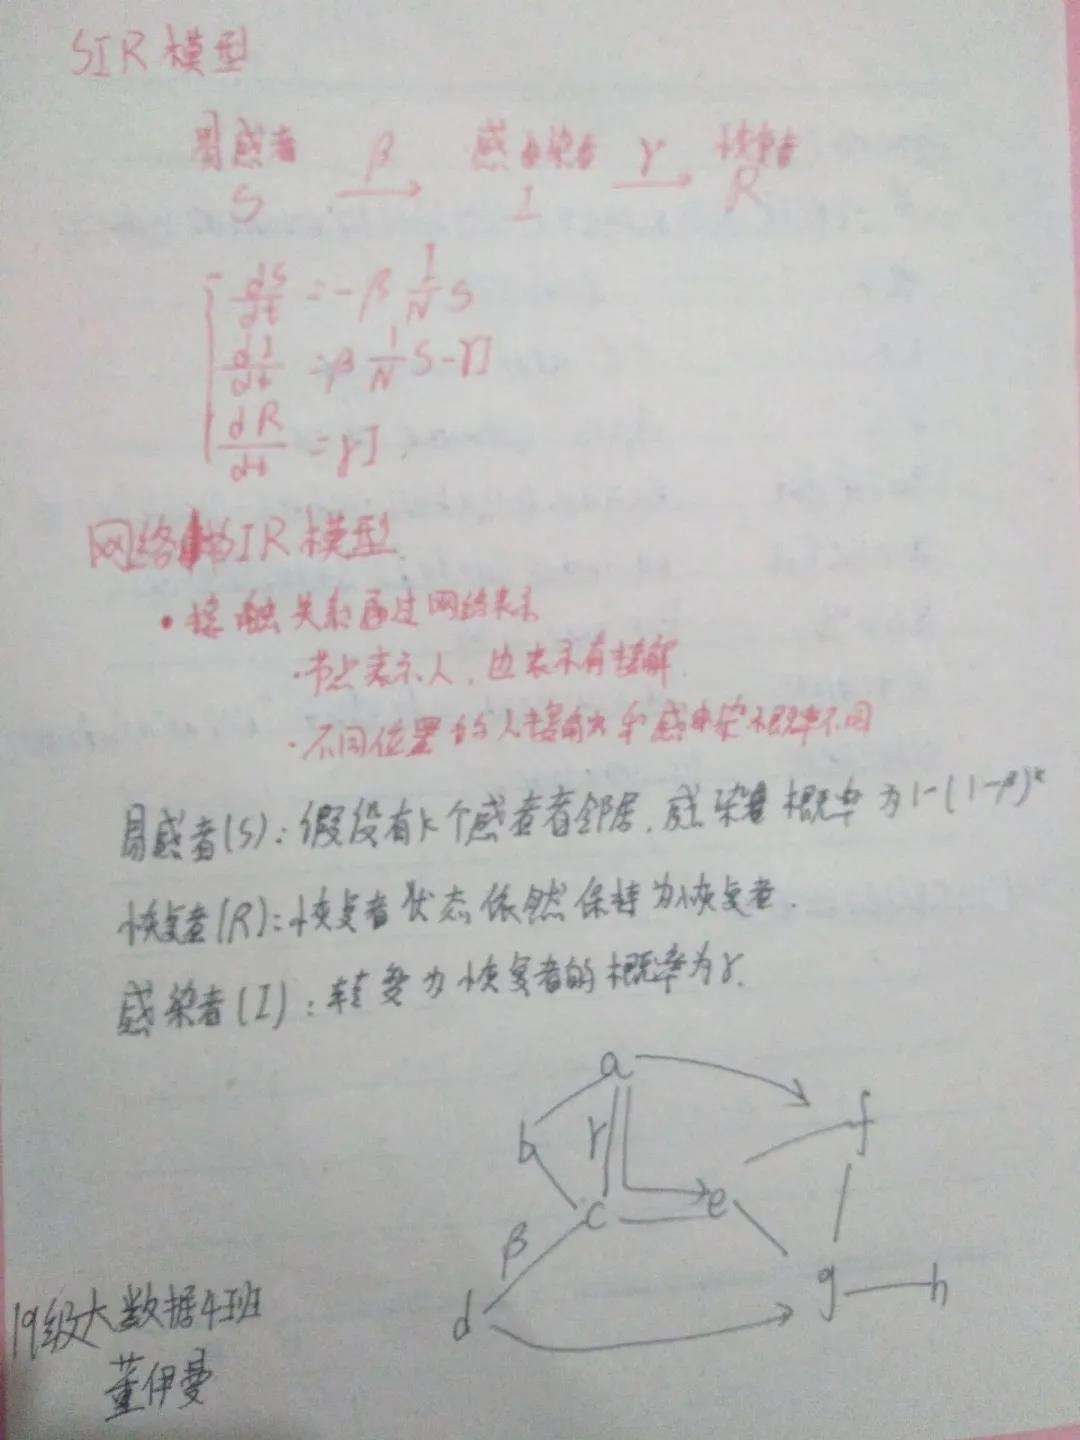 SIR 模型
易感者 β 感染者 γ 恢复者
S I R
dS/dt = -β I/N S
dI/dt = β I/N S - γI
dR/dt = γI.
网络的IR模型
• 接触关系通过网络表示
·节点表示人,边表示有接触
·不同位置的人接触和感染概率不同
易感者(S):假设有k个感者者邻居,感染概率为1-(1-β)^k
恢复者(R):恢复者状态依然保持为恢复者.
感染者(I):转变为恢复者的概率为γ.
a
b γ f
c e
β
d g h
19级大数据4班
董伊曼